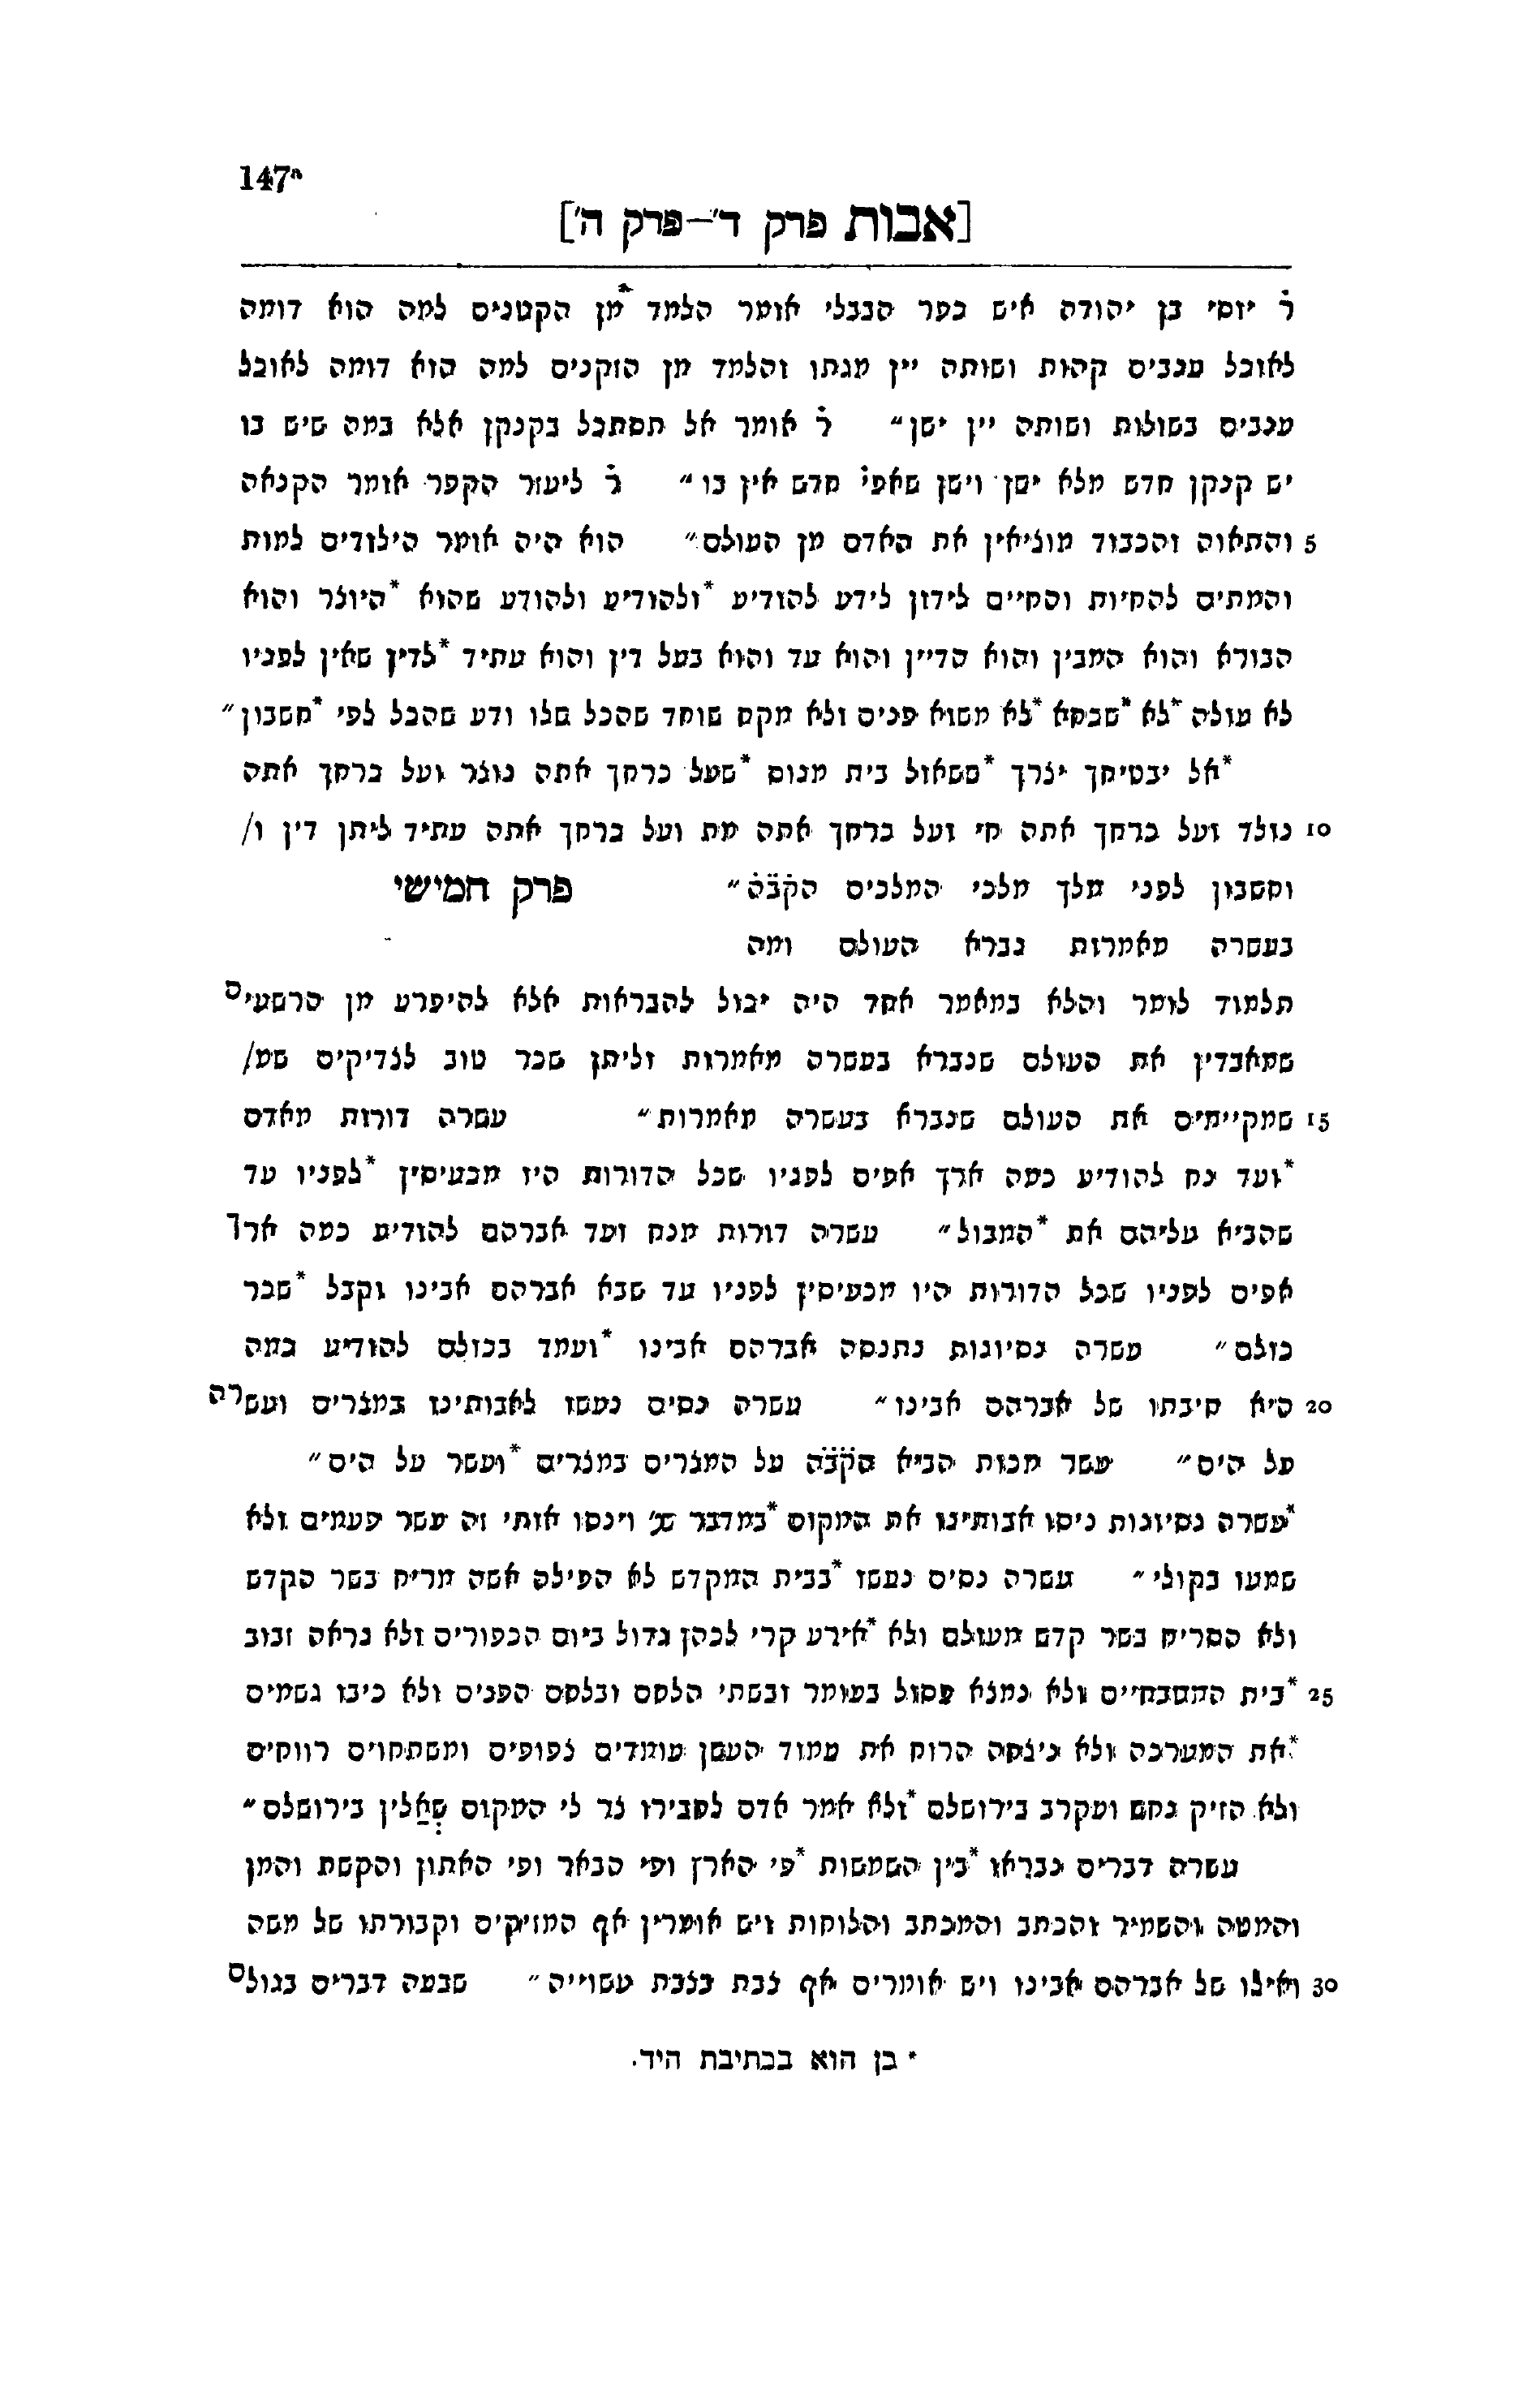 147ª
[אבות פרק ד'—פרק ה']
ר׳ יוסי בן יהודה איש כפר הבבלי אומר הלמד *מן הקטנים למה הוא דומה
לאוכל ענבים קהות ושותה יין מגתו והלמד מן הזקנים למה הוא דומה לאוכל
ענבים בשולות ושותה יין ישן״ ר׳ אומר אל תסתכל בקנקן אלא במה שיש בו
יש קנקן חדש מלא ישן וישן שאפי׳ חדש אין בו״ ר׳ ליעזר הקפר אומר הקנאה
5 והתאוה והכבוד מוציאין את האדם מן העולם״ הוא היה אומר הילודים למות
והמתים להחיות והחיים לידון לידע להודיע *ולהודיע ולהודע שהוא *היוצר והוא
הבורא והוא המבין והוא הדיין והוא עד והוא בעל דין והוא עתיד *לדין שאין לפניו
לא עולה *לא *שכחא *לא משוא פנים ולא מקח שוחד שהכל שלו ודע שהכל לפי *חשבון״
*אל יבטיחך יצרך *משאול בית מנוס *שעל כרחך אתה נוצר ועל כרחך אתה
10 נולד ועל כרחך אתה חי ועל כרחך אתה מת ועל כרחך אתה עתיד ליתן דין ו/
וחשבון לפני מלך מלכי המלכים הקבה״ פרק חמישי
בעשרה מאמרות נברא העולם ומה
תלמוד לומר והלא במאמר אחד היה יכול להבראות אלא להיפרע מן הרשעים
שמאבדין את העולם שנברא בעשרה מאמרות וליתן שכר טוב לצדיקים שמ/
15 שמקיימים את העולם שנברא בעשרה מאמרות״ עשרה דורות מאדם
*ועד נח להודיע כמה ארך אפים לפניו שכל הדורות היו מכעיסין *לפניו עד
שהביא עליהם את *המבול״ עשרה דורות מנח ועד אברהם להודיע כמה ארך
אפים לפניו שכל הדורות היו מכעיסין לפניו עד שבא אברהם אבינו וקבל *שכר
כולם״ עשרה נסיונות נתנסה אברהם אבינו *ועמד בכולם להודיע כמה
20 היא חיבתו של אברהם אבינו״ עשרה נסים נעשו לאבותינו במצרים ועשרה
על הים״ עשר מכות הביא הקבה על המצרים במצרים *ועשר על הים״
*עשרה נסיונות ניסו אבותינו את המקום *במדבר שנ׳ וינסו אותי זה עשר פעמים ולא
שמעו בקולי״ עשרה נסים נעשו *בבית המקדש לא הפילה אשה מריח בשר הקדש
ולא הסריח בשר קדש מעולם ולא *אירע קרי לכהן גדול ביום הכפורים ולא נראה זבוב
25 *בית המטבחיים ולא נמצא פסול בעומר ובשתי הלחם ובלחם הפנים ולא כיבו גשמים
*את המערכה ולא ניצחה הרוח את עמוד העשן עומדים צפופים ומשתחוים רווחים
ולא הזיק נחש ועקרב בירושלם *ולא אמר אדם לחבירו צר לי המקום שאלין בירושלם״
עשרה דברים נבראו *בין השמשות *פי הארץ ופי הבאר ופי האתון והקשת והמן
והמטה והשמיר והכתב והמכתב והלוחות ויש אומרין אף המזיקים וקבורתו של משה
30 ואילו של אברהם אבינו ויש אומרים אף צבת בצבת עשוייה״ שבעה דברים בגולם
* בן הוא בכתיבת היד.